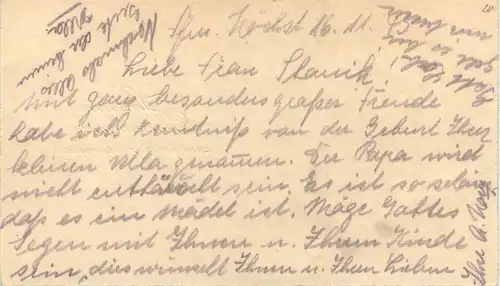 Ffm. Höchst 16. 11.
Liebe Frau Stanik!
Mit ganz besonders großer Freude
habe ich Kenntniß von der Geburt Ihrer
kleinen Ulla genommen. Der Papa wird
nicht enttäuscht sein. Es ist so schön
daß es ein Mädel ist. Möge Gottes
Segen mit Ihnen u. Ihrem Kinde
sein, dies wünscht Ihnen u. Ihren Lieben
Ihre A.
Nochmals alles
Gute der kleinen
Ulla
20